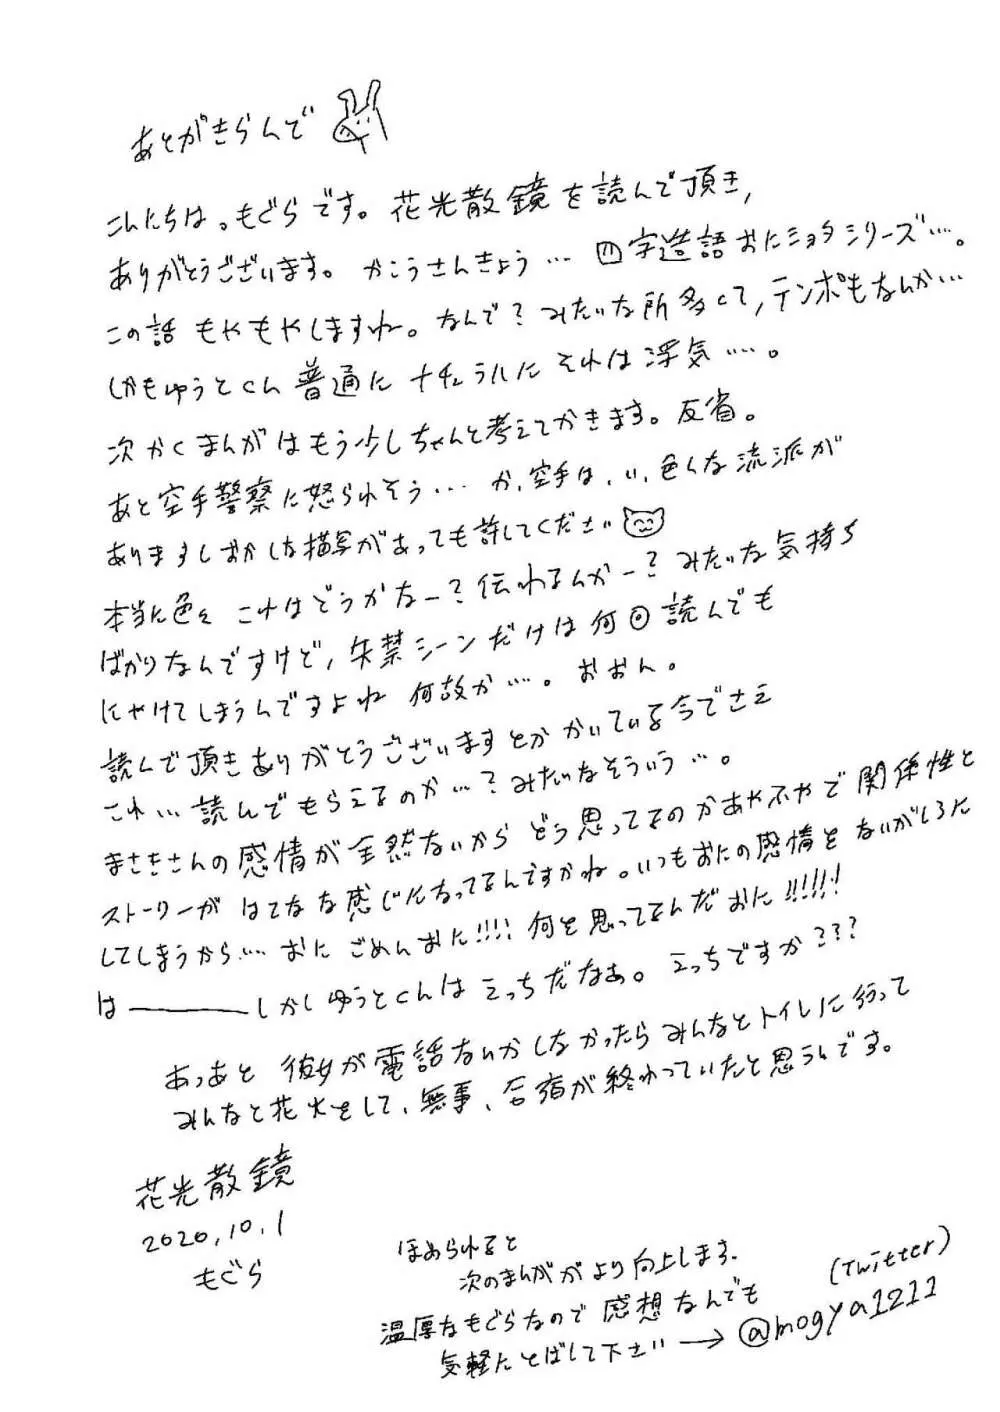 あとがきらんで
こんにちは。もぐらです。花光散鏡を読んで頂き,
ありがとうございます。かこうさんきょう… 四字造語おにショタシリーズ…。
この話もやもやしますね。なんで?みたいな所多くて,テンポもなんか…
しかもゆうとくん普通にナチュラルにそれは浮気…。
次かくまんがはもう少しちゃんと考えてかきます。反省。
あと空手警察に怒られそう… か,空手は,い,色々な流派が
ありますしおかしな描写があっても許してください
本当に色々これはどうかなー?伝わるんかー?みたいな気持ち
ばかりなんですけど,失禁シーンだけは何回読んでも
にやけてしまうんですよね 何故か…。おおん。
読んで頂きありがとうございますとかかいている今でさえ
これ…読んでもらえるのか…?みたいなそういう…。
まさきさんの感情が全然ないからどう思ってるのかあやふやで関係性と
ストーリーがはてなな感じになってるんですかね。いつもおにの感情をないがしろに
してしまうから…おに ごめんおに!!!! 何を思ってるんだおに!!!!!
は―――しかしゆうとくんはえっちだなぁ。えっちですか???
あっあと 彼女が電話ないかしなかったらみんなとトイレに行って
みんなと花火をして、無事、合宿が終わっていたと思うんです。
花光散鏡
2020,10,1
もぐら
ほめられると
次のまんががより向上します.
温厚なもぐらなので 感想なんでも
気軽にとばして下さい → @mogya1211
(Twitter)